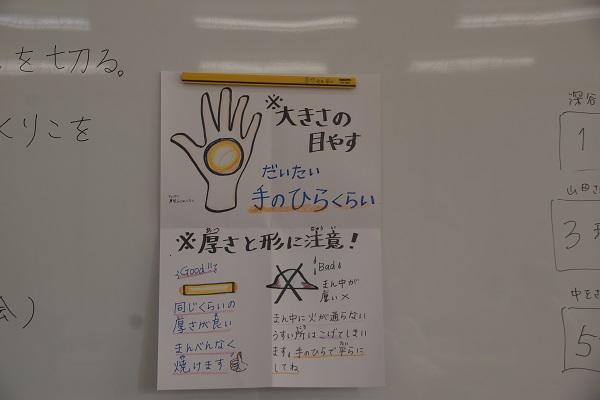 を切る。
くりこを
※大きさの
目やす
だいたい
手のひらくらい
※厚さと形に注意！
Good!!
同じくらいの
厚さが良い
まんべんなく
焼けます
Bad
まん中が
厚い×
まん中に火が通らない
うすい所はこげてしまい
ます。手のひらで平らに
してね
深谷
1
山田さ
3
中をさ
5